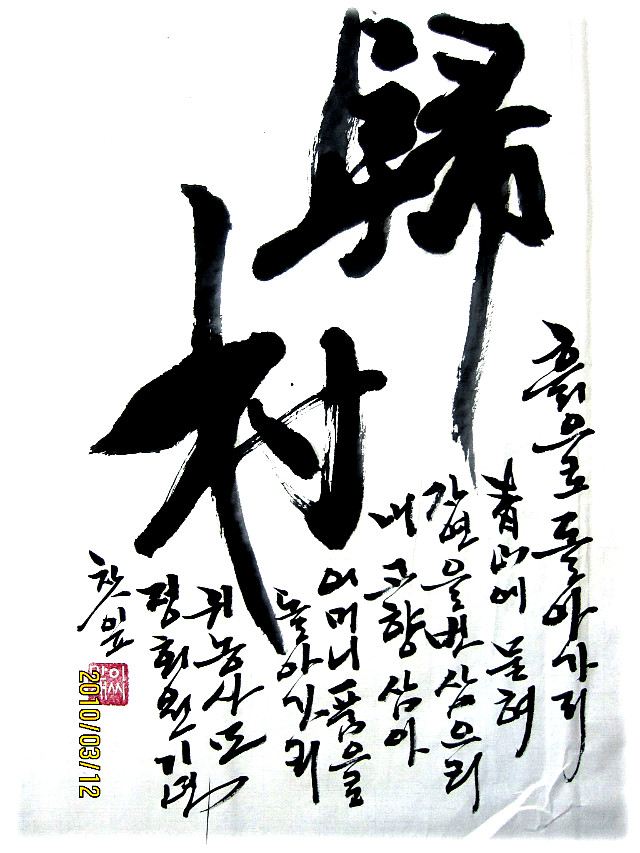 歸村
흙으로 돌아가리
青山에 묻혀
자연을 벗삼으리
내 고향 삼아
어머니 품을
돌아가리
귀농사모
정회원 기념
2010/03/12